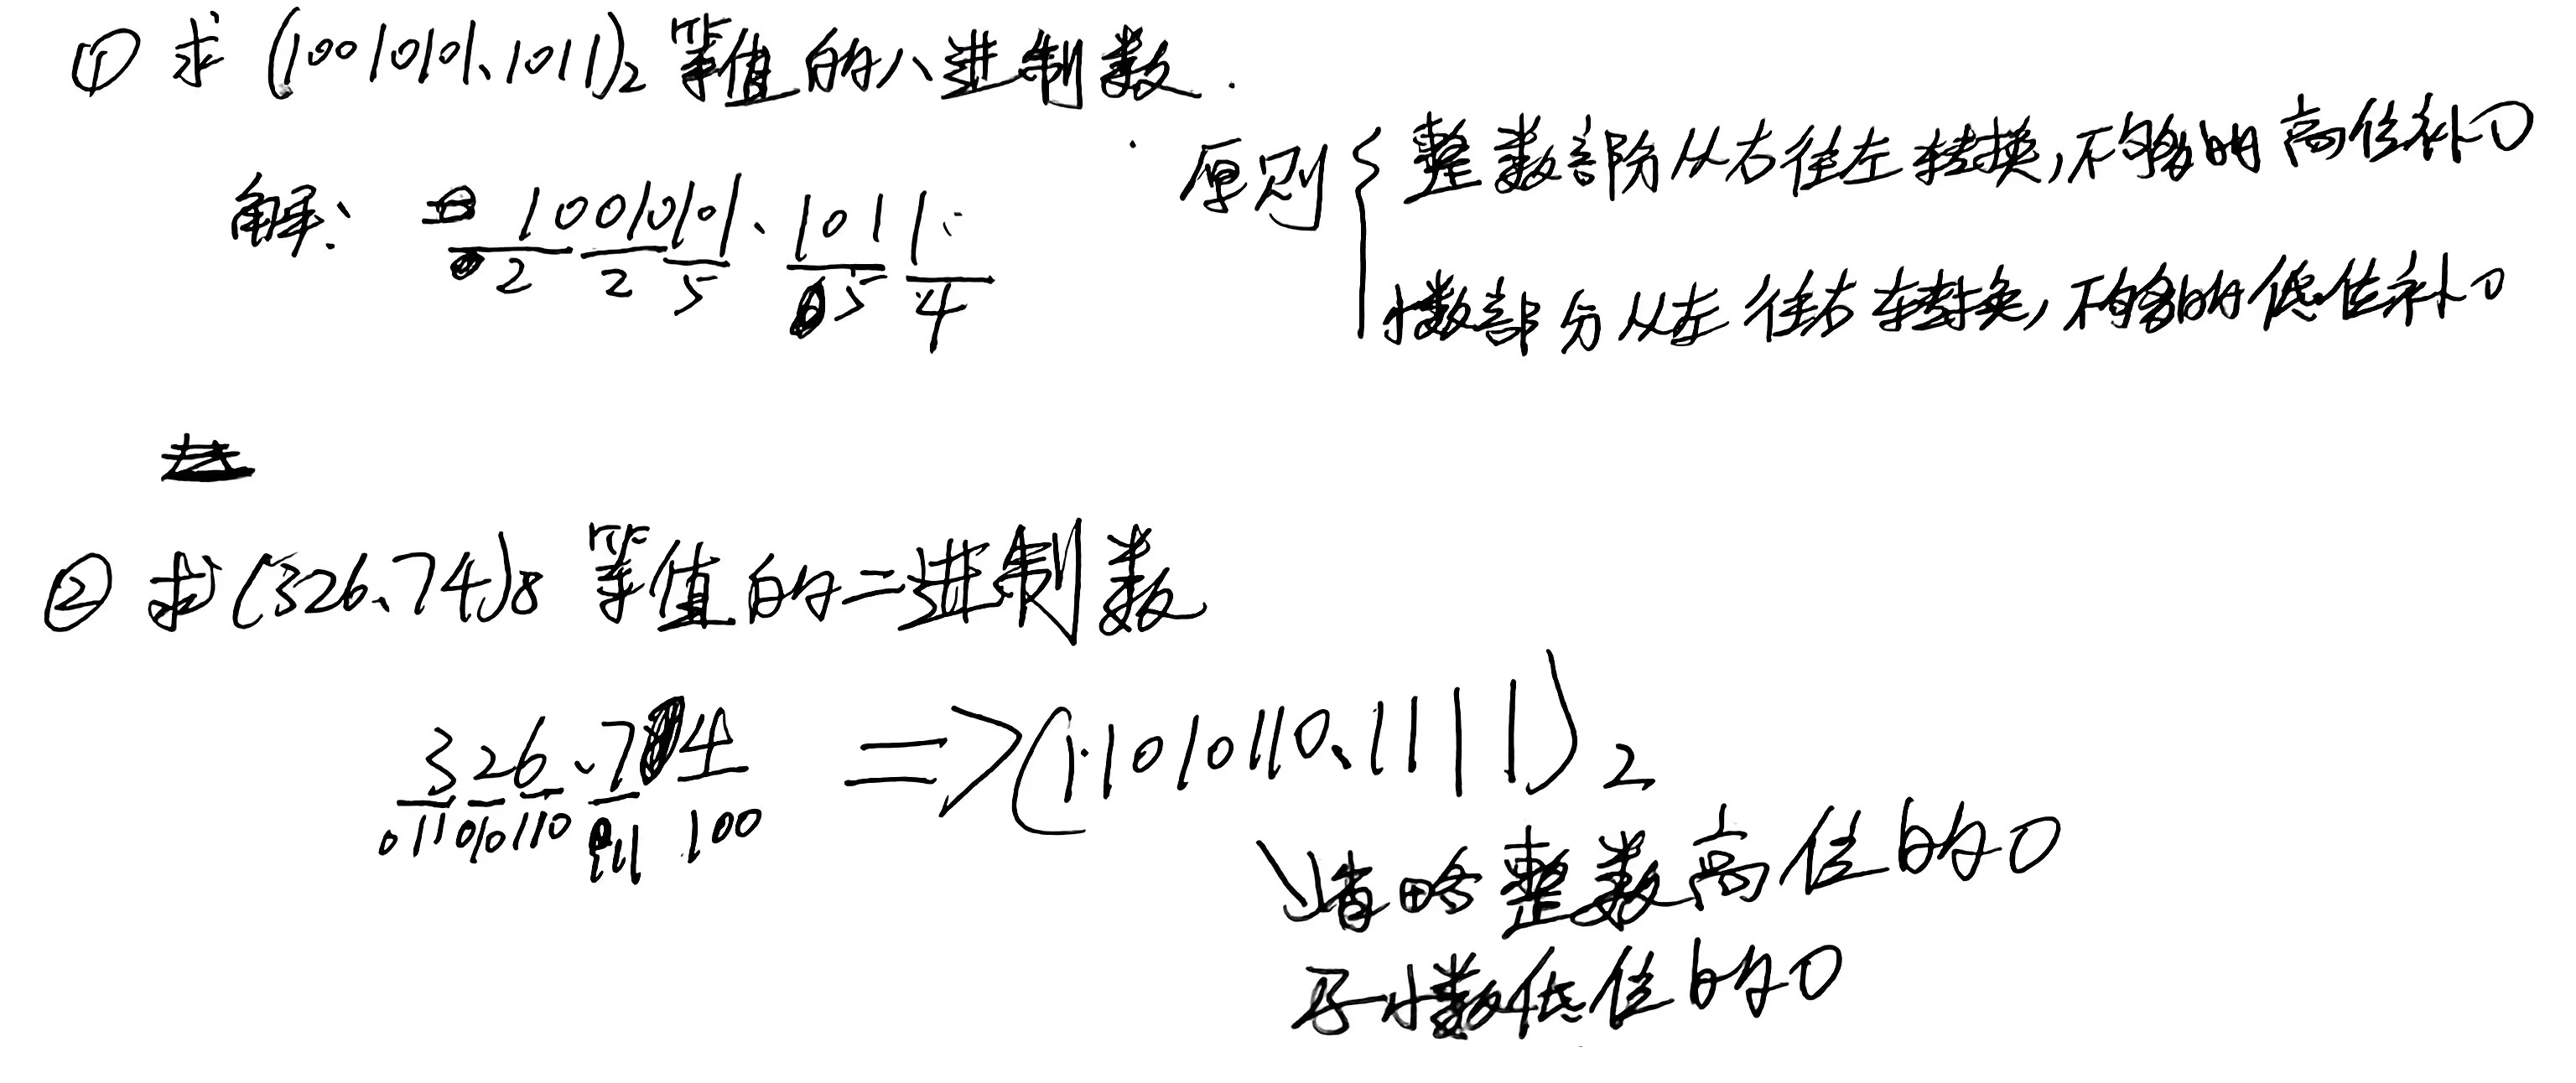 ① 求 (10010101.1011)₂ 等值的八进制数.
原则 { 整数部份从右往左转换,不够的高位补0
小数部分从左往右转换,不够的低位补0
解: 10010101.1011
2 2 5 5 4
② 求(326.74)8 等值的二进制数
326.74 => (11010110.1111)2
011 010 110 111 100
省略整数高位的0
及小数低位的0